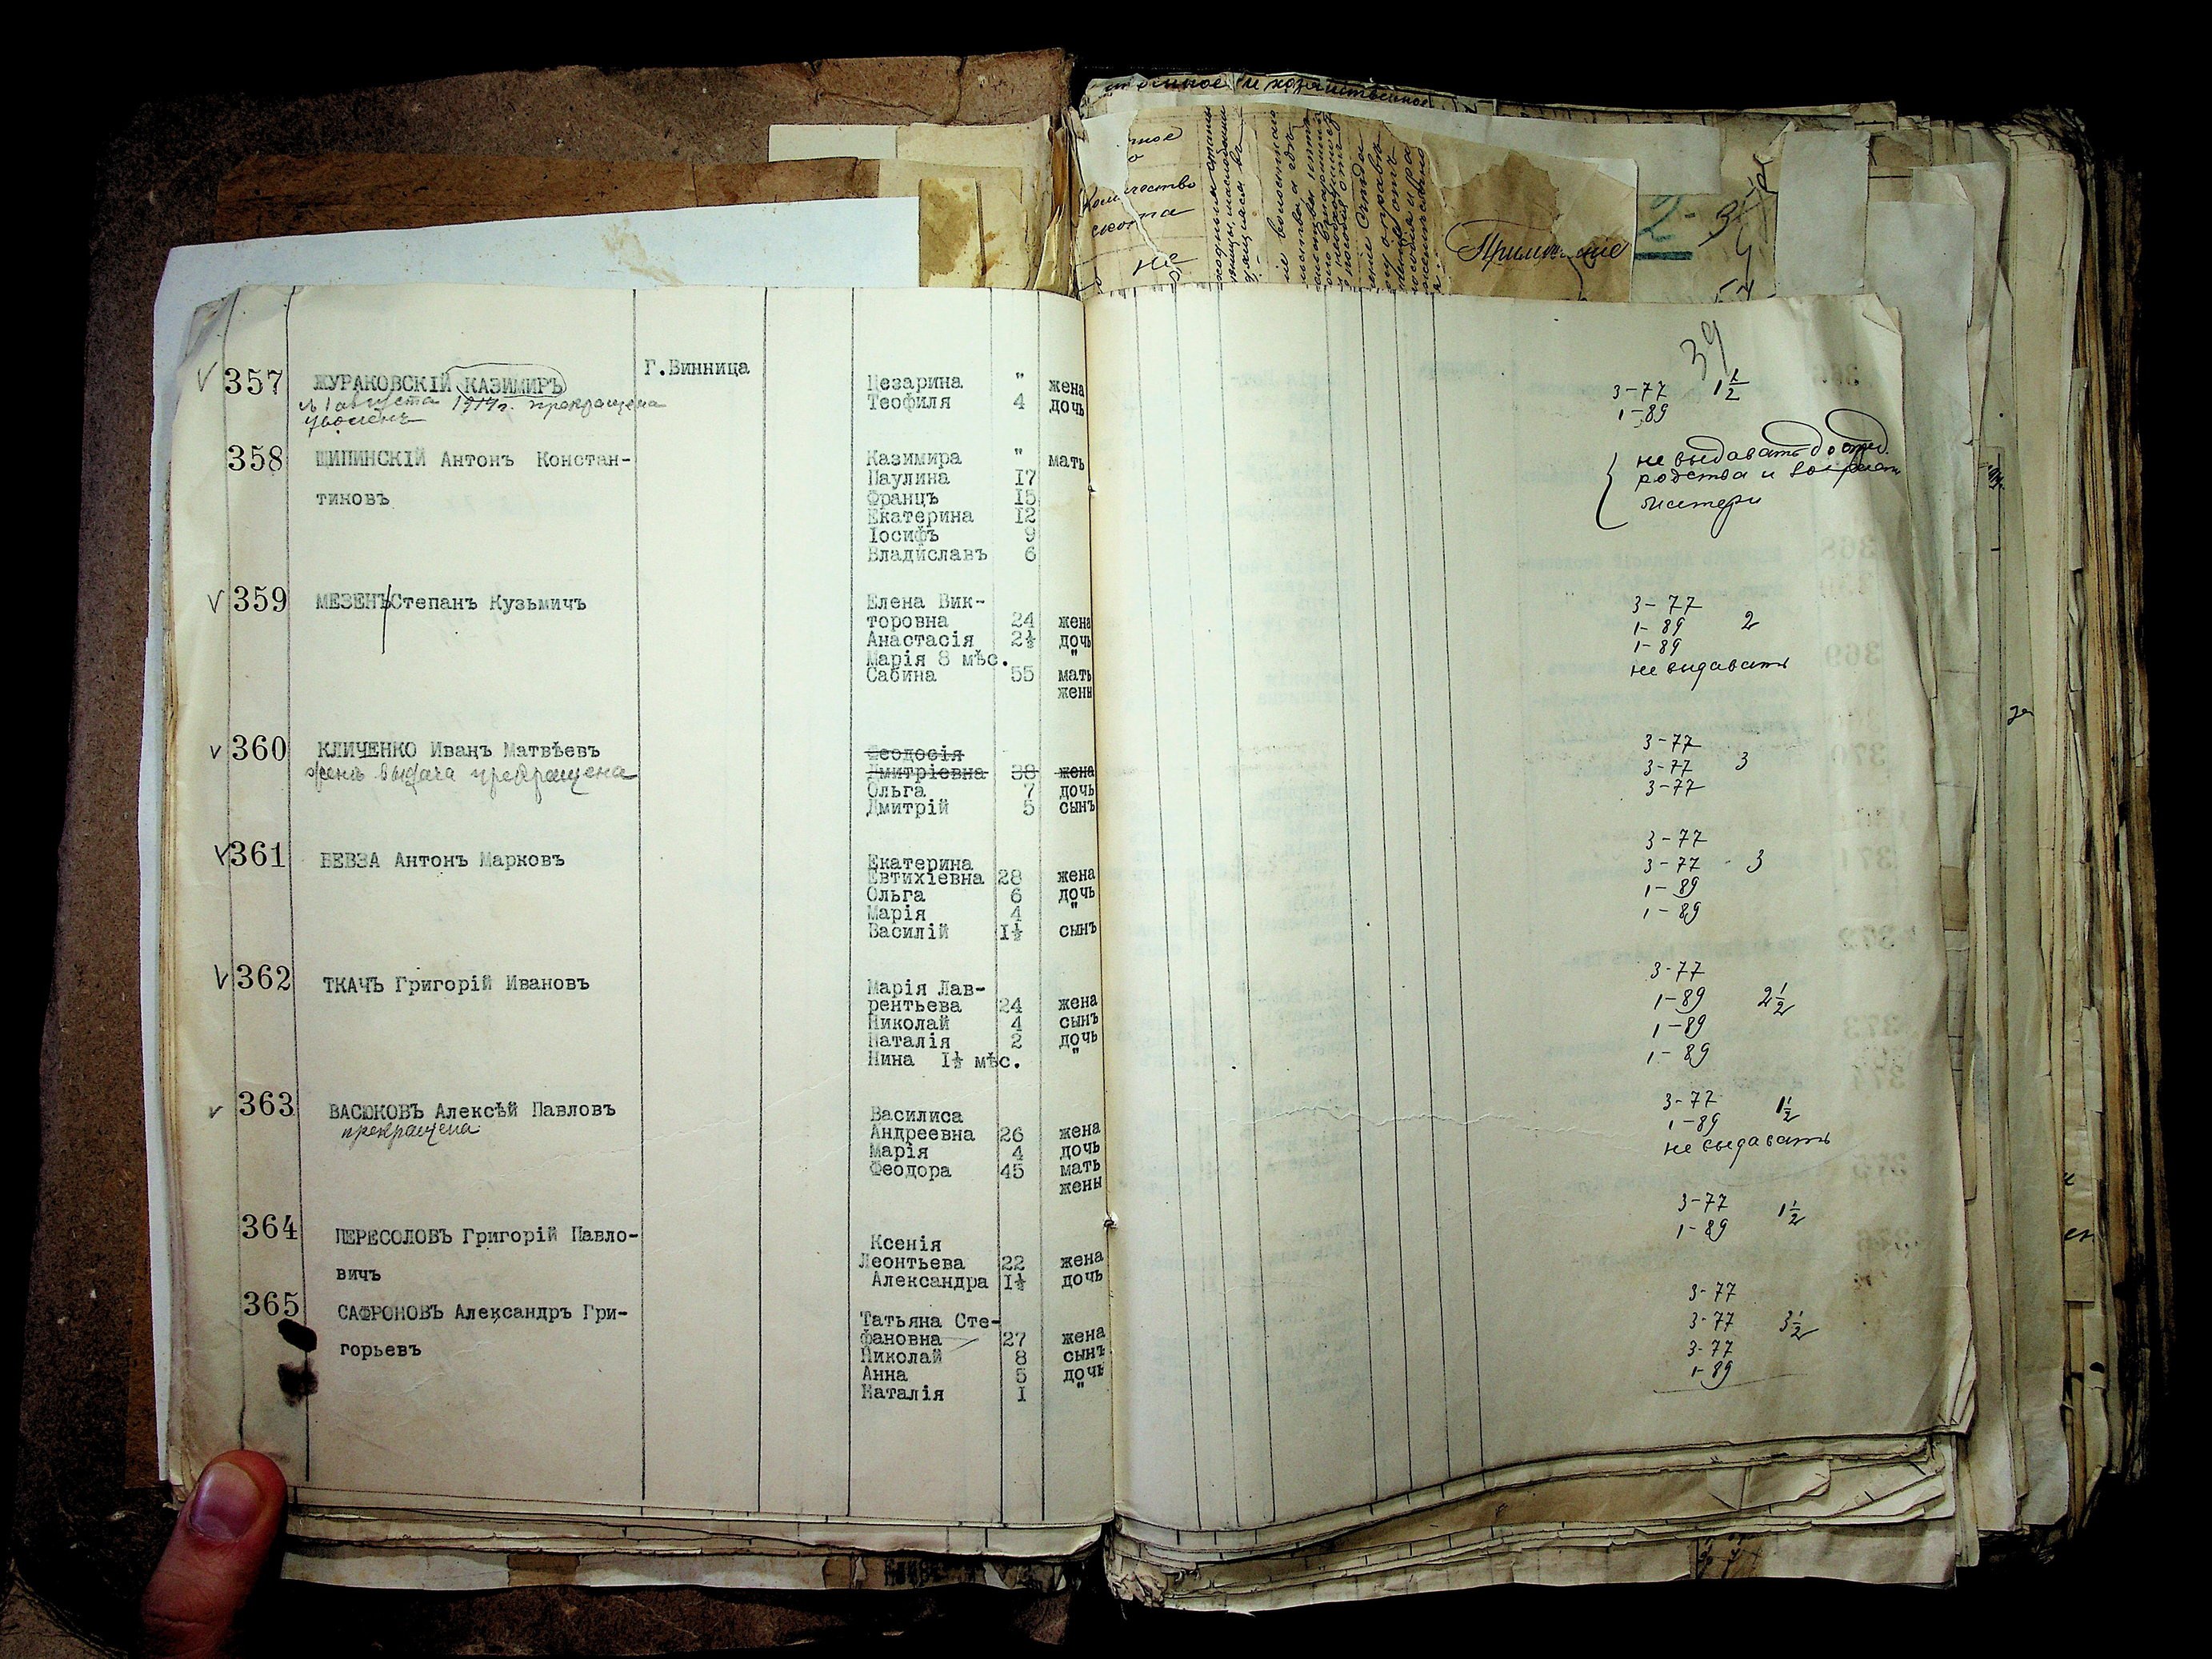 нное и хозяйственное
Количество
скота
не
Примѣчаніе
2-
39
Г.Винница
357 ЖУРАКОВСКІЙ КАЗИМИРЪ Цезарина " жена 3-77 1½
съ 1 августа 1917г. прекращена Теофиля 4 дочь 1-89
уволенъ
358 ЩИПИНСКІЙ Антонъ Констан- Казимира " мать не выдавать до
тиновъ Паулина 17 родства и
Францъ 15 матери
Екатерина 12
Іосифъ 9
Владиславъ 6
359 МЕЗЕНЪ Степанъ Кузьмичъ Елена Вик- 3-77
торовна 24 жена 1-89 2
Анастасія 2½ дочь 1-89
Марія 8 мѣс. " не выдавать
Сабина 55 мать
жены
360 КЛИЧЕНКО Иванъ Матвѣевъ Феодосія 3-77
женѣ выдача прекращена Дмитріевна 38 жена 3-77 3
Ольга 7 дочь 3-77
Дмитрій 5 сынъ
361 БЕВЗА Антонъ Марковъ Екатерина 3-77
Евтихіевна 28 жена 3-77 - 3
Ольга 6 дочь 1-89
Марія 4 " 1-89
Василій 1½ сынъ
362 ТКАЧЪ Григорій Ивановъ Марія Лав- 3-77
рентьева 24 жена 1-89 2½
Николай 4 сынъ 1-89
Наталія 2 дочь 1-89
Нина 1½ мѣс. "
363 ВАСЮКОВЪ Алексѣй Павловъ Василиса 3-77 1½
прекращена Андреевна 26 жена 1-89
Марія 4 дочь не выдавать
Феодора 45 мать
жены
364 ПЕРЕСОЛОВЪ Григорій Павло- Ксенія 3-77 1½
Леонтьева 22 жена 1-89
вичъ Александра 1½ дочь
365 САФРОНОВЪ Александръ Гри- Татьяна Сте- 3-77
фановна 27 жена 3-77 3½
горьевъ Николай 8 сынъ 3-77
Анна 5 дочь 1-89
Наталія 1 "